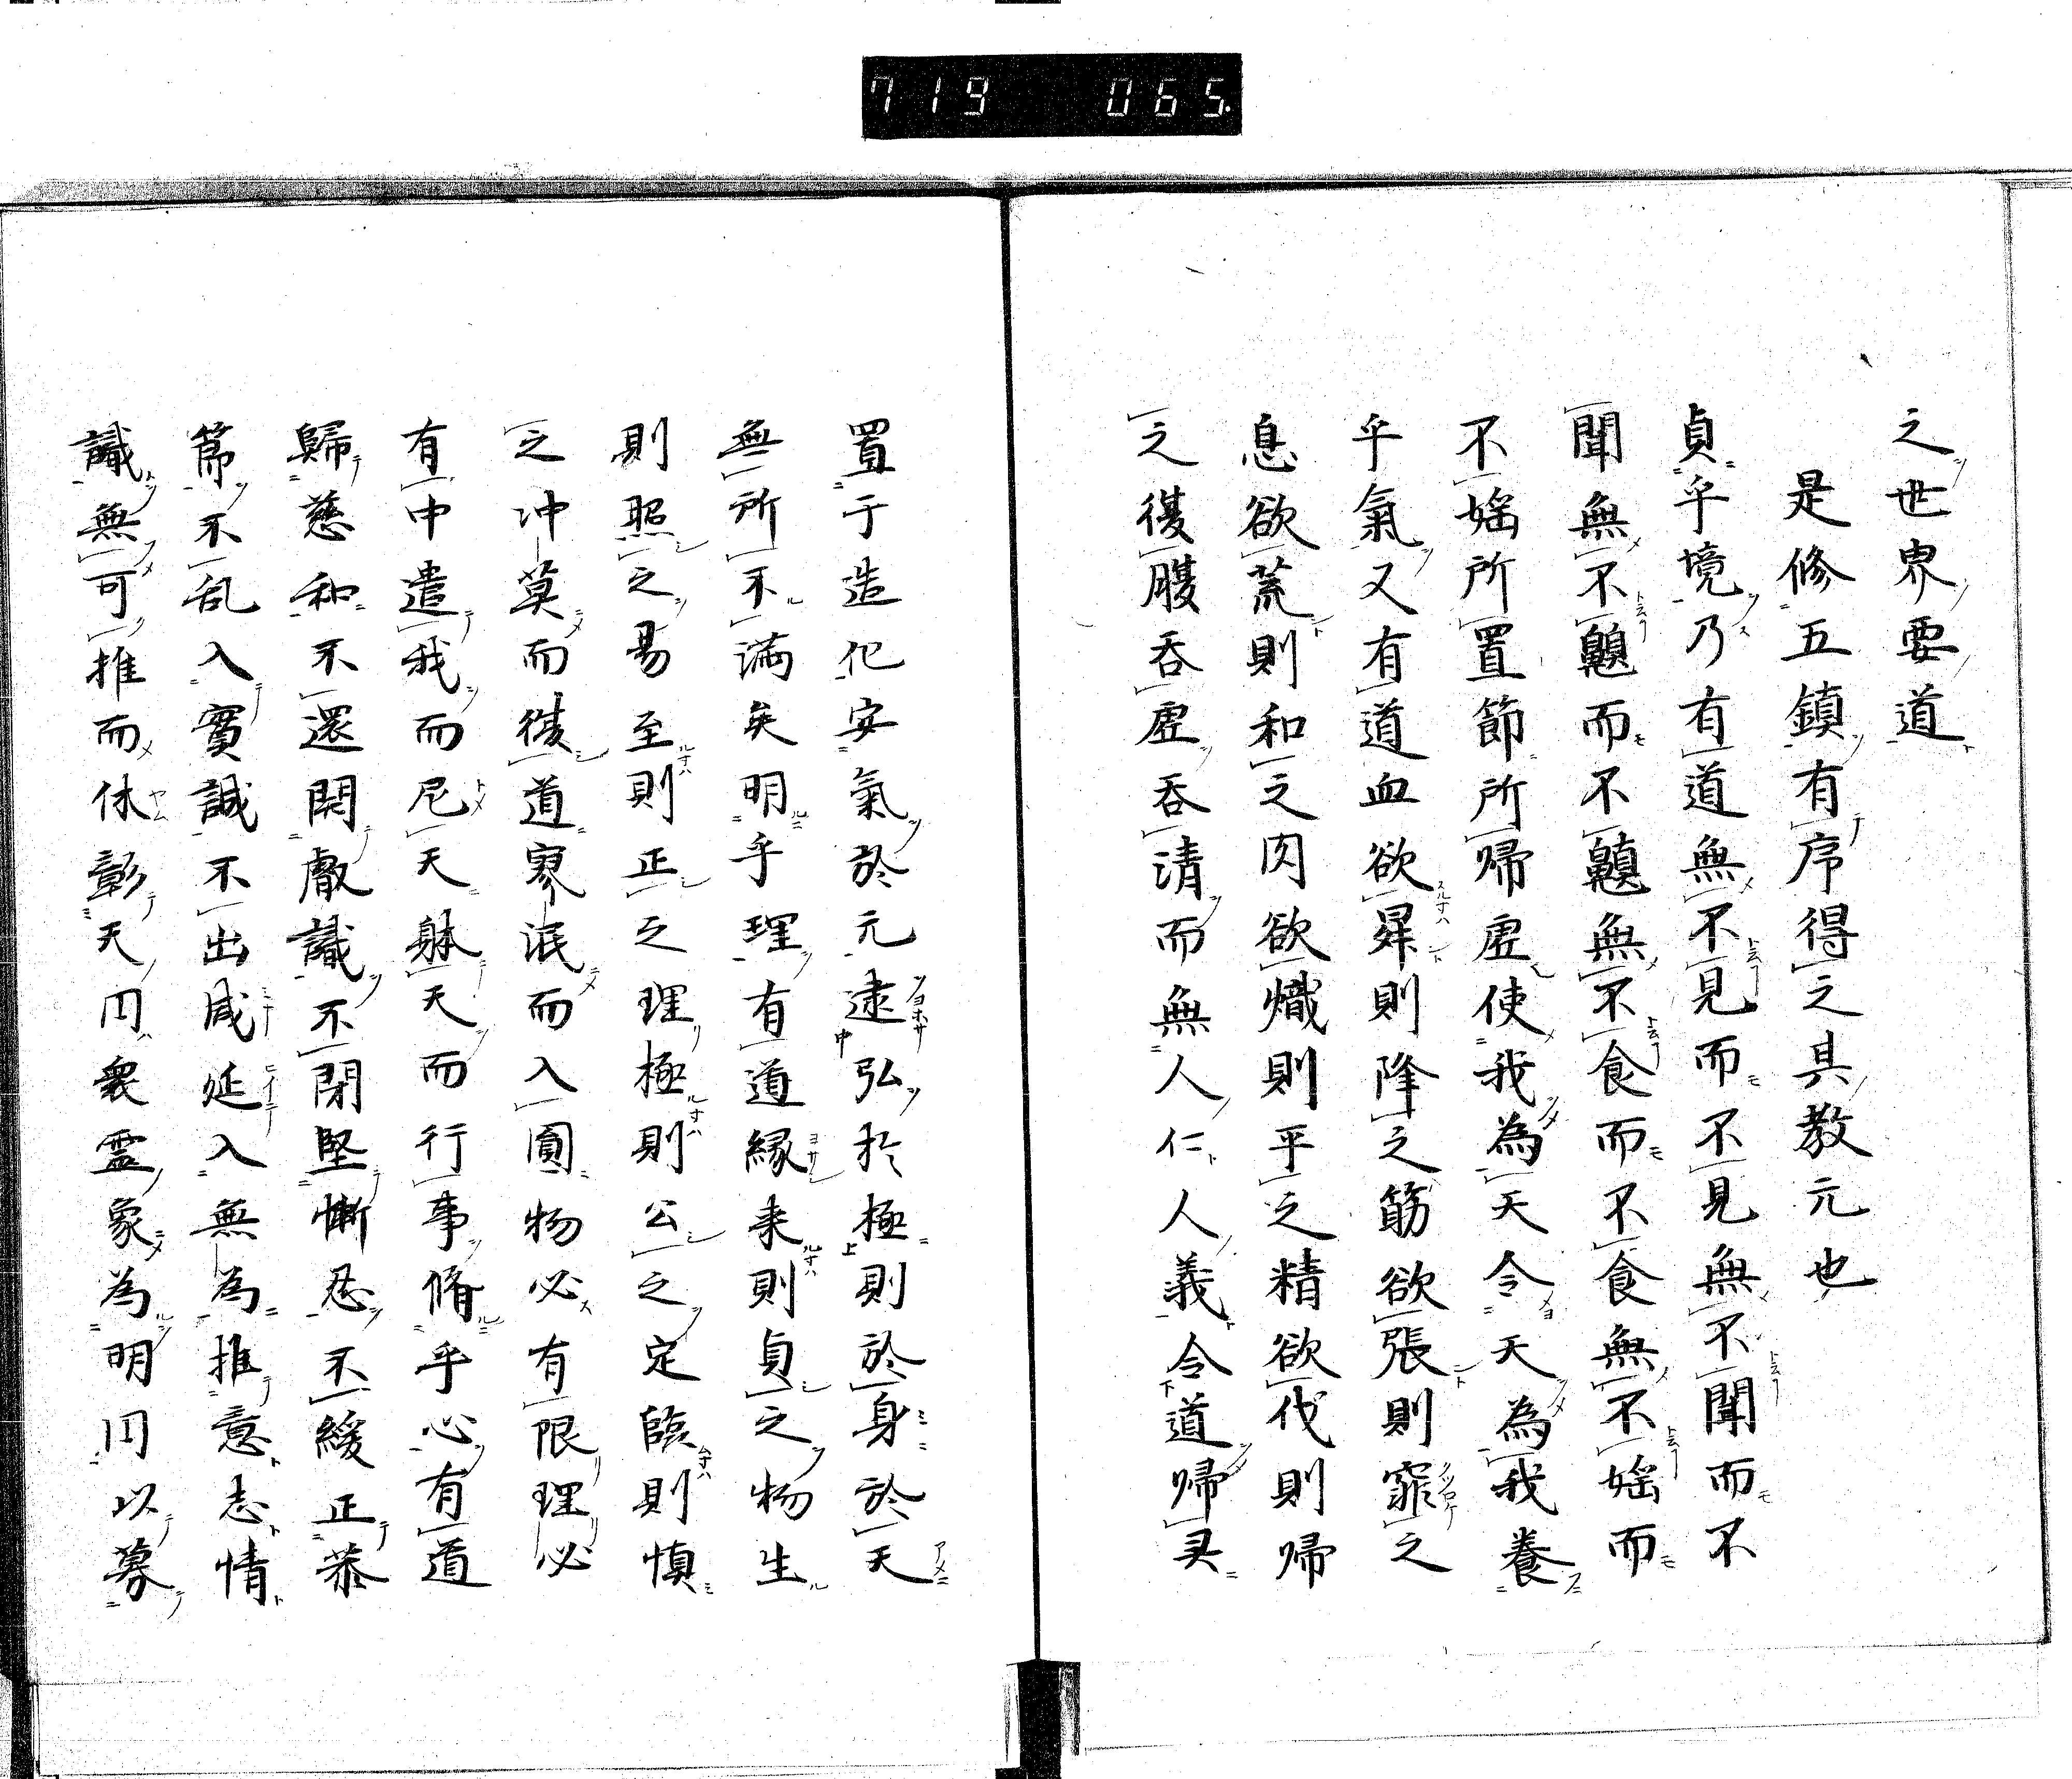 719 065
之世界要道
是修五鎮有序得之其教元也
貞乎境乃有道無不見而不見無不聞而不
聞無不齅而不齅無不食而不食無不婬而
不婬所置節所帰虚使我為天令天為我養
乎氣又有道血欲昇則降之筋欲張則窕之
息欲荒則和之肉欲熾則平之精欲伐則帰
之復腹吞虚吞清而無人仁人義令道帰
置于造化安氣於元逮弘於極則於身於天
無所不満矣明乎理有道縁来則貞之物生
則照之易至則正之理極則公之定臨則慎
之冲莫而後道寥泯而入圓物必有限理必
有中遣我而尼天躰天而行事脩乎心有道
歸慈和不還開處識不閉堅慚忍不緩正恭
篤不乱入實誠不出咸延入無為推意志情
識無可推而休彰天円衆霊象為明円以募